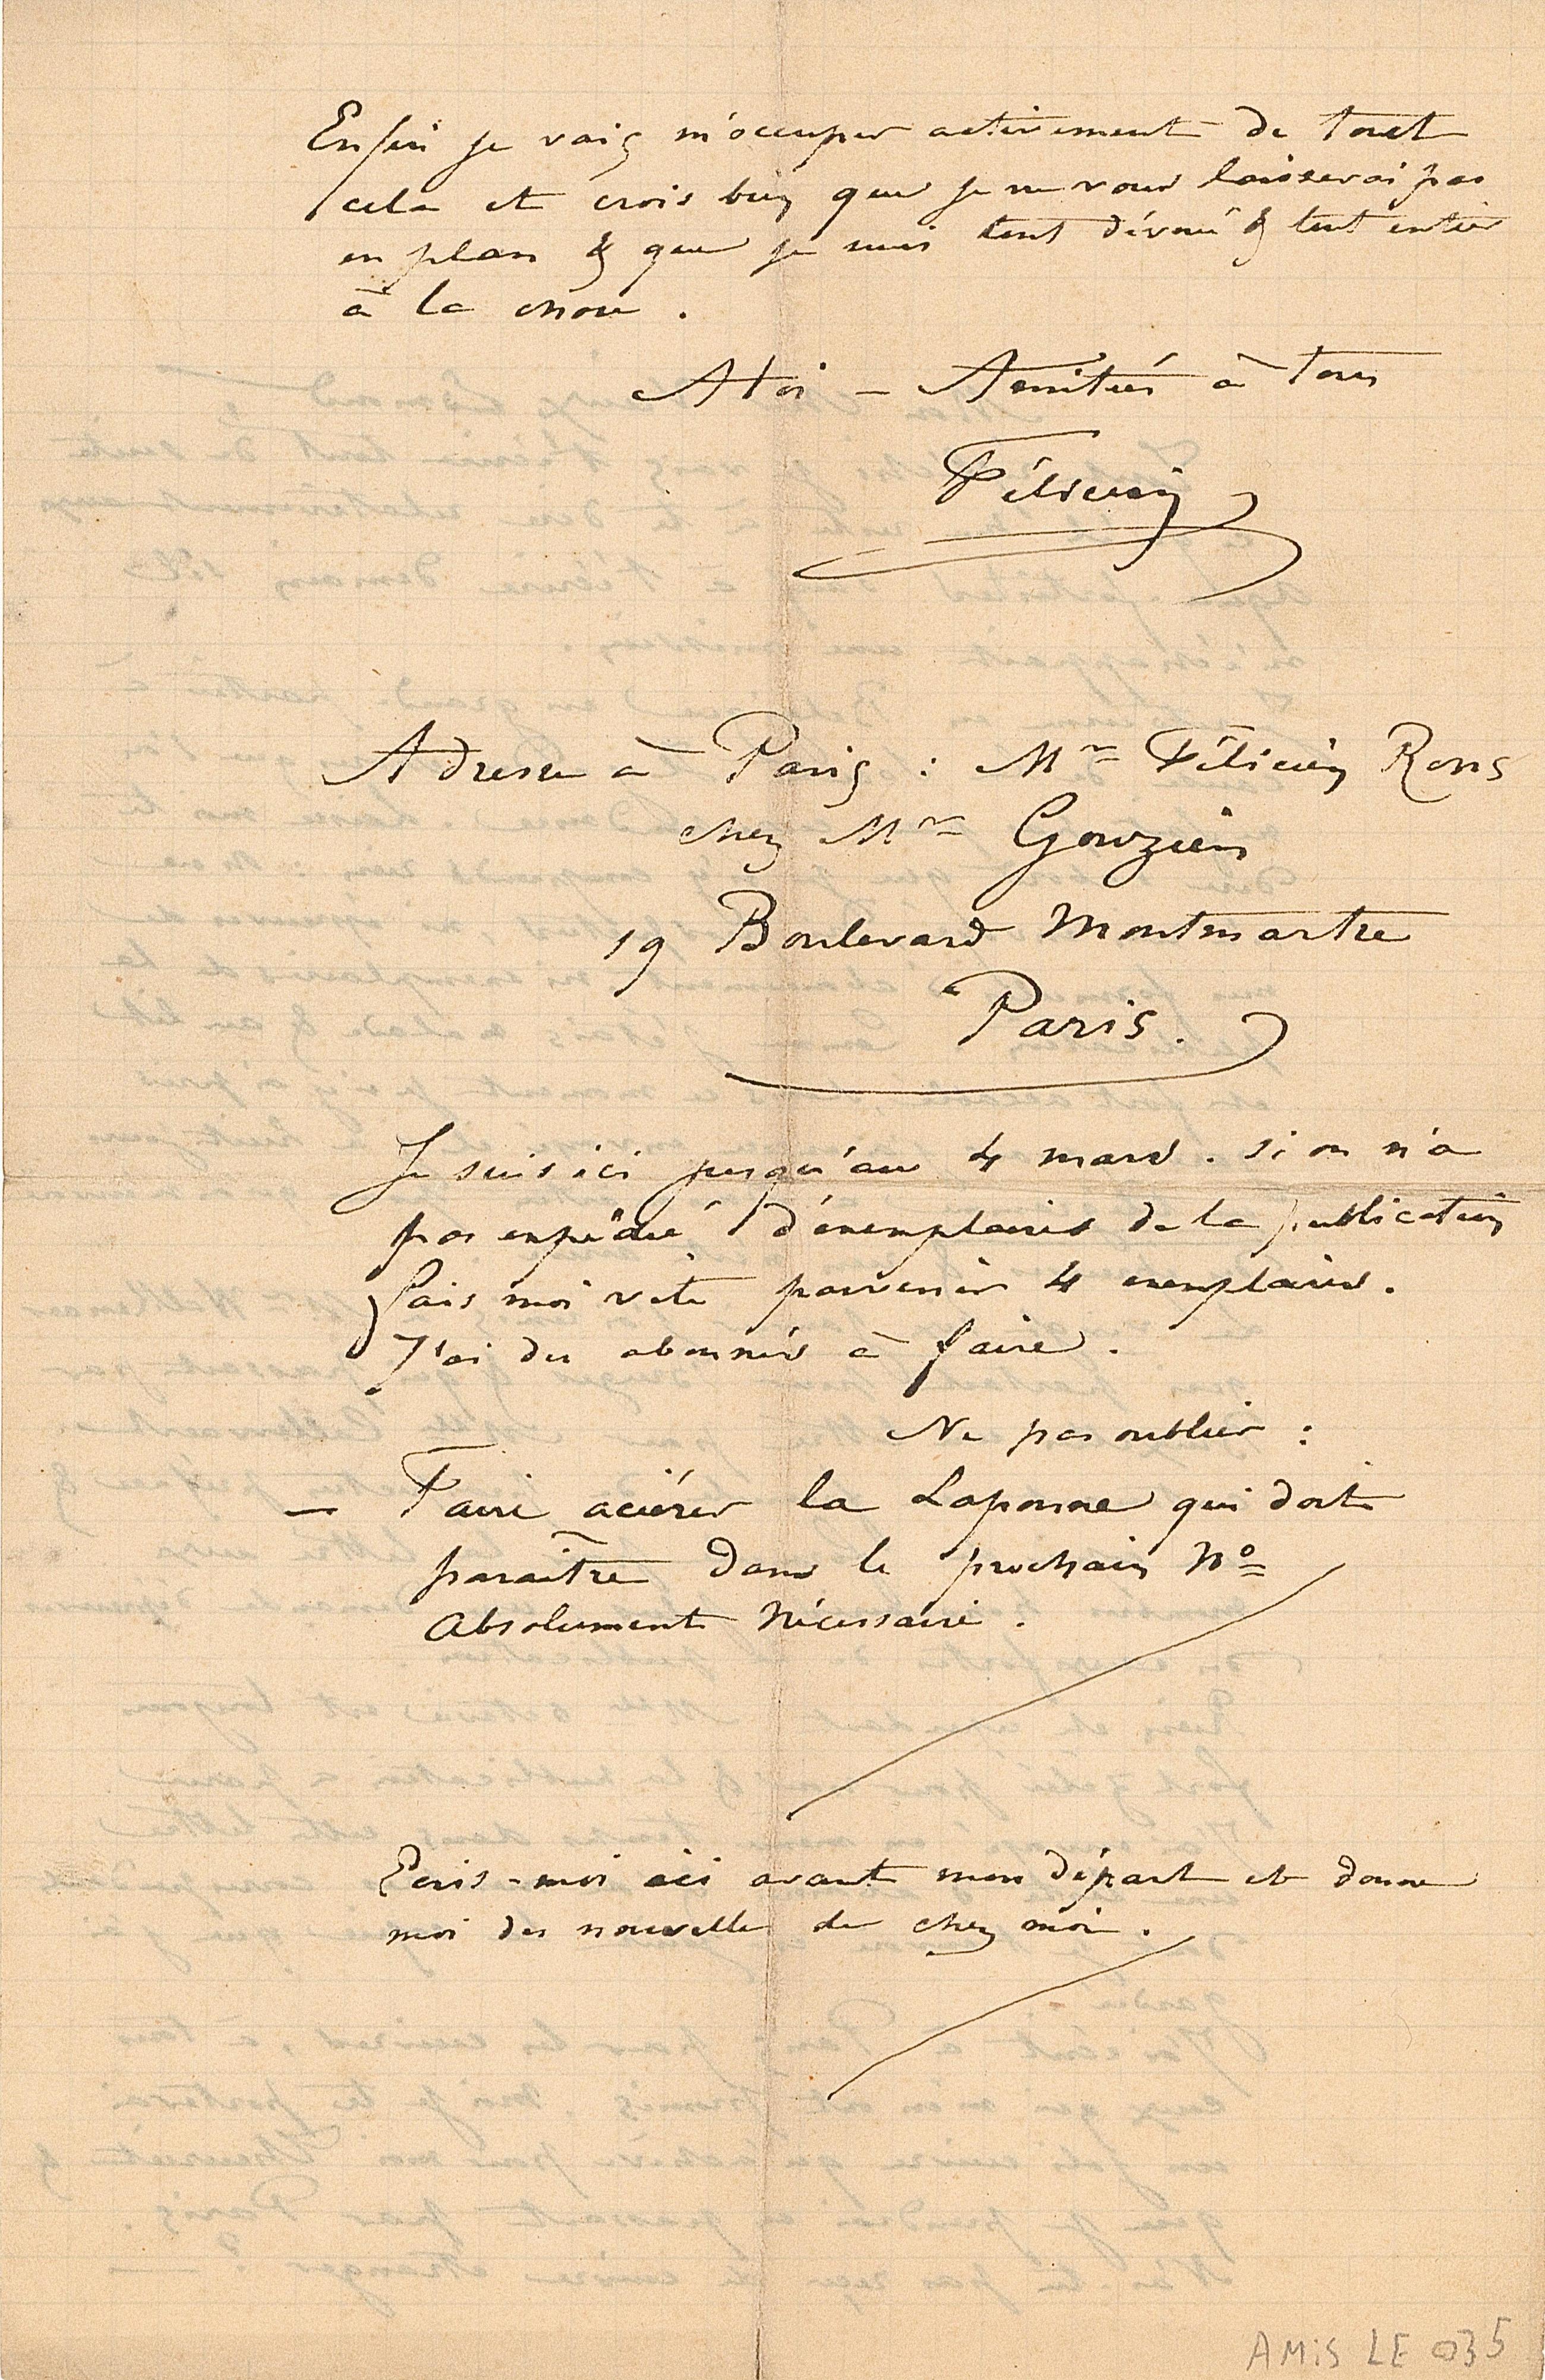 Enfin je vais m'occuper activement de tout
cela et crois bien que je ne vous laisserai pas
en plan & que je suis tout dévoué & tout entier
à la chose.
A toi – Amitiés à tous
Félicien
Adresse à Paris : Mr Félicien Rops
chez Mr Gouzien
19 Boulevard Montmartre
Paris.
Je suis ici jusqu'au 4 mars. si on n'a
pas expédié d'exemplaires de la publication
fais moi vite parvenir 4 exemplaires.
J'ai des abonnés à faire.
Ne pas oublier :
— Faire aciérer la Laponne qui doit
paraître dans le prochain No
Absolument Nécessaire.
Ecris-moi ici avant mon départ et donne
moi des nouvelles de chez moi.
AMIS LE 035